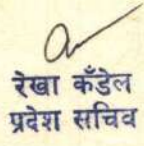 रेखा कँडेल
प्रदेश सचिव